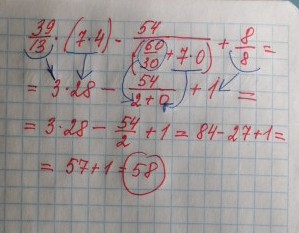 39/13 · (7·4) - 54/(60/30 + 7·0) + 8/8 =
= 3·28 - 54/(2+0) + 1 =
= 3·28 - 54/2 + 1 = 84 - 27 + 1 =
= 57 + 1 = 58